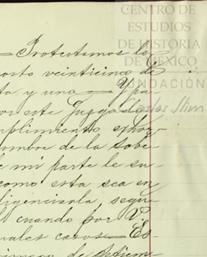 CENTRO DE
ESTUDIOS
DE HISTORIA
DE MÉXICO
FUNDACIÓN
Carlos Slim
Protestamos lo
osto veinticinco de
ta y uno
or este Juzgado
mplimiento
ombre de la Sobe
de mi parte le su
como esta sea en
ligenciarla, segu
cuando por V.
uales casos